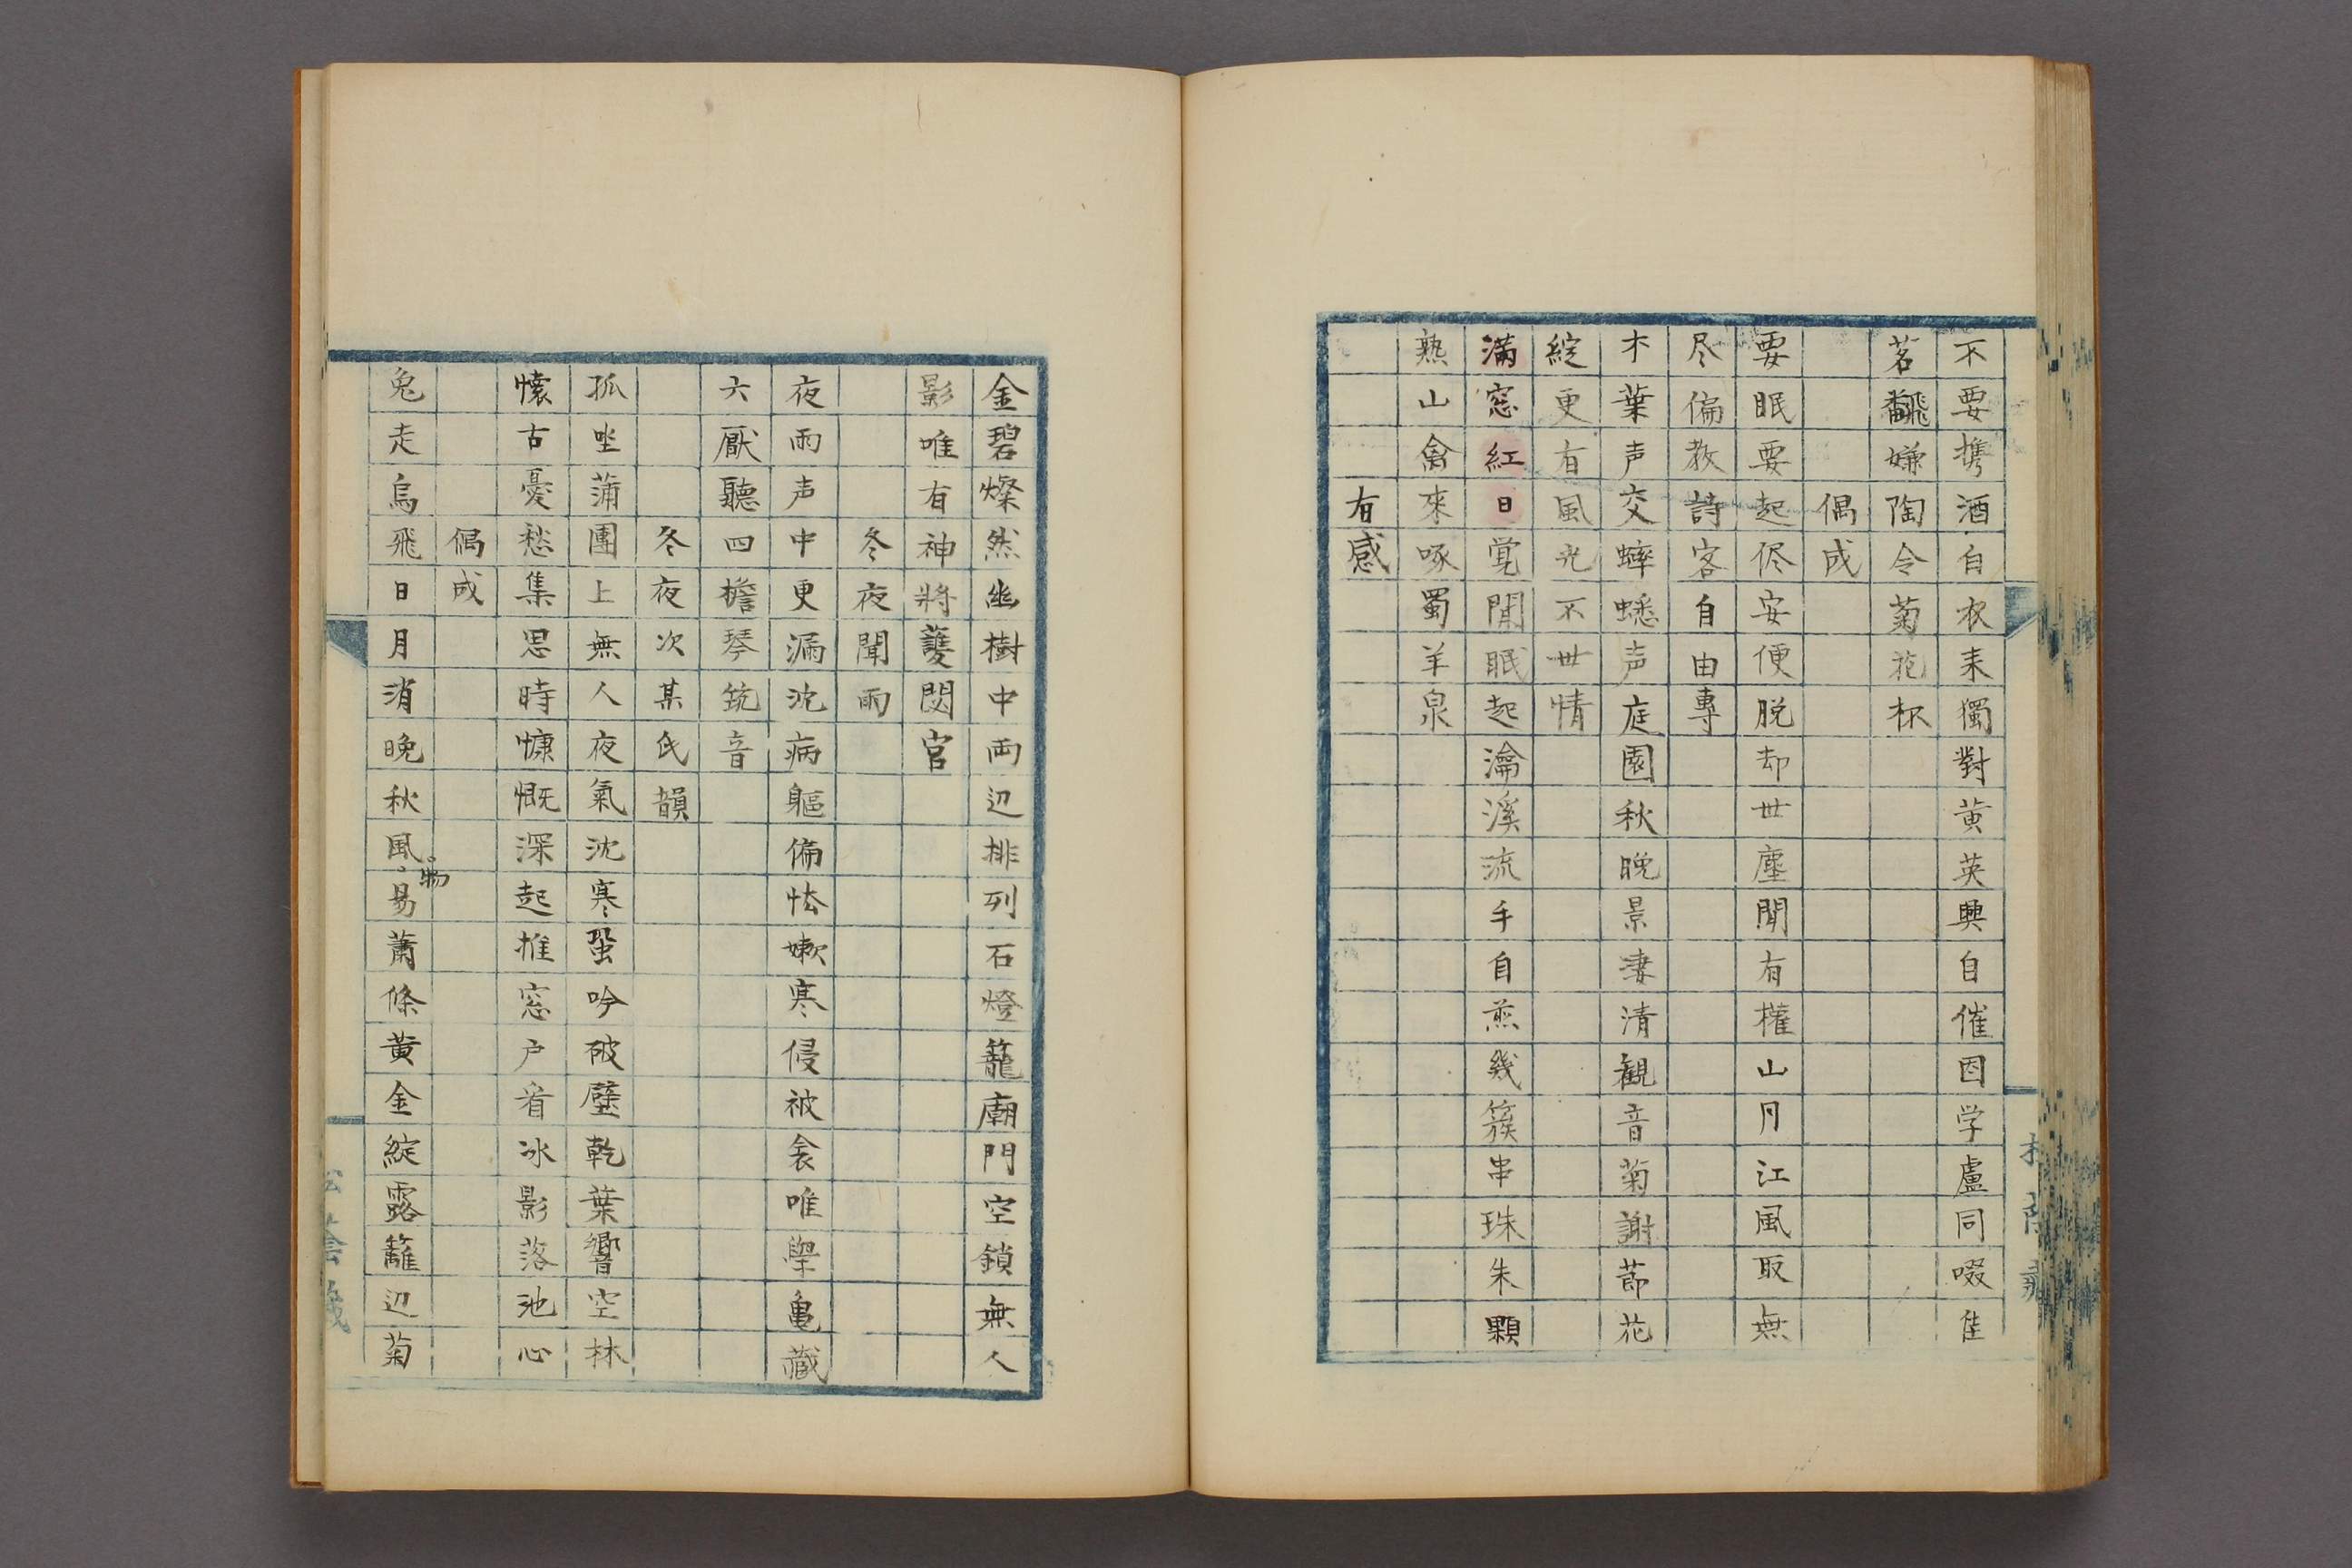 不要携酒白衣来獨對黄英興自催因学盧同啜佳
茗飜嫌陶令菊花杯
偶成
要眠要起侭安便脱却世塵聞有権山月江風取無
尽偏教詩客自由專
木葉声交蟀蟋声庭園秋晩景凄清観音菊謝節花
綻更有風光不世情
満窓紅日覚閒眠起瀹溪流手自煎幾簇串珠朱顆
熟山禽來啄蜀羊泉
有感
金碧燦然幽樹中両辺排列石燈籠廟門空鎖無人
影唯有神將護閟宮
冬夜聞雨
夜雨声中更漏沈病軀偏怯嫩寒侵被衾唯學亀藏
六厭聽四檐琴筑音
冬夜次某氏韻
孤坐蒲團上無人夜氣沈寒蛩吟破壁乾葉響空林
懷古憂愁集思時慷慨深起推窓戸看冰影落池心
偶成
兔走烏飛日月消晩秋風物易蕭條黄金綻露籬辺菊